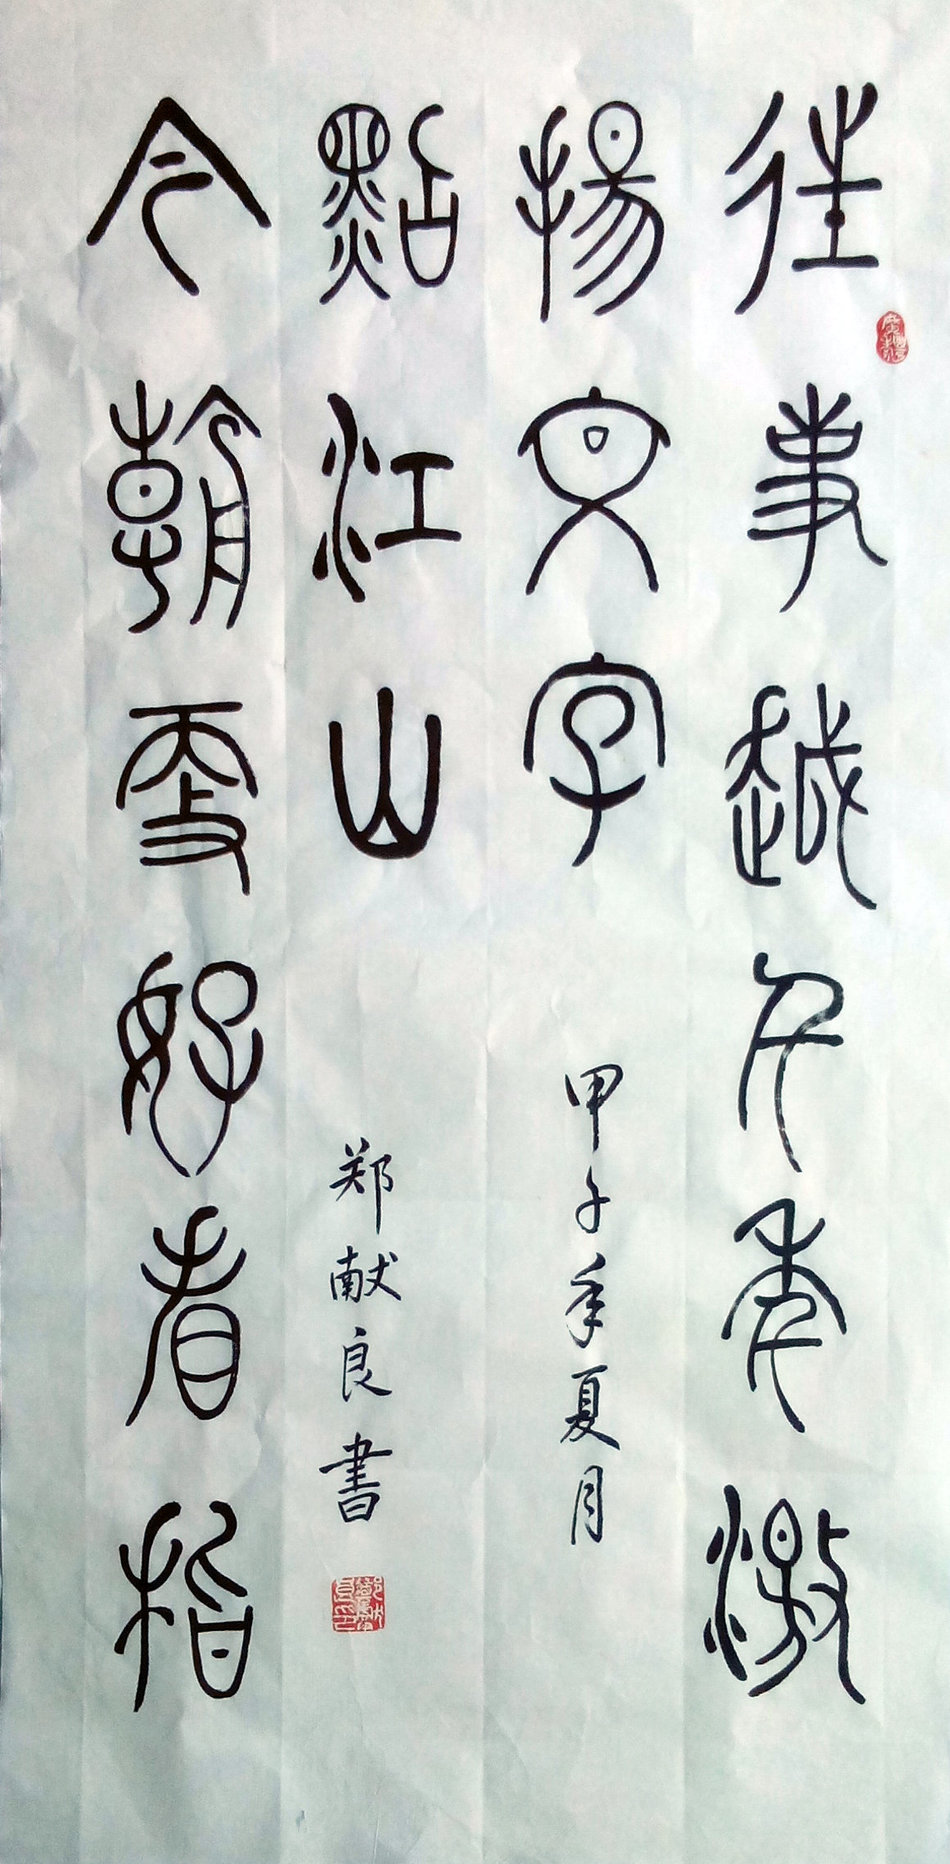 往事越千年激
揚文字
甲子年夏月
今朝更好看指
點江山
郑献良書